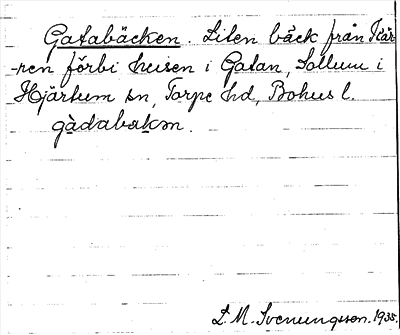 Gatabäcken. Liten bäck från Kär-
-ren förbi husen i Gatan, Sollum i
Hjärtum sn, Torpe hd, Bohus l.
gàdabakɘn.
L. M. Svenungsson. 1935.